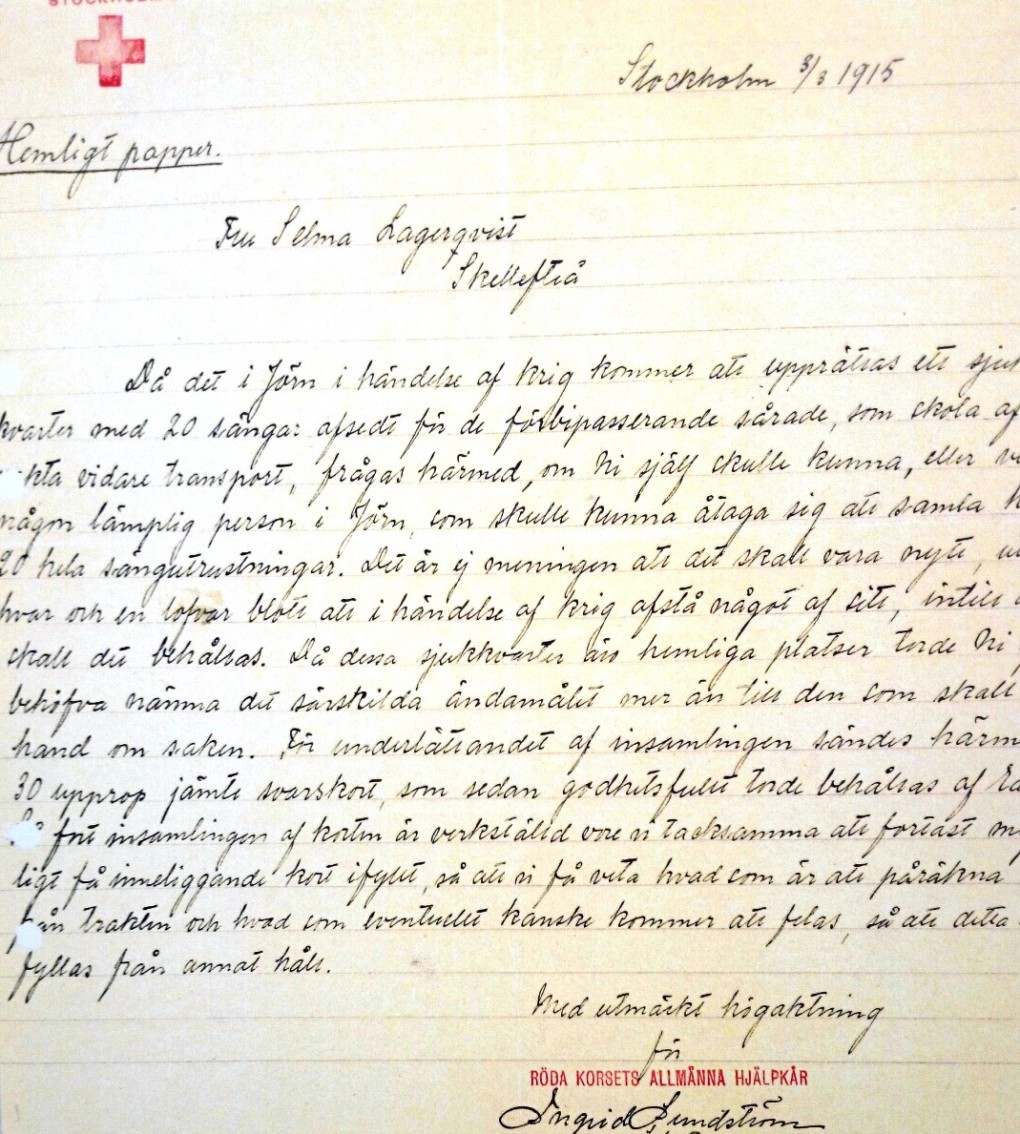 STOCKHOLM
Stockholm 3/3 1915
Hemligt papper.
Fru Selma Lagerqvist
Skellefteå
Då det i Jörn i händelse af krig kommer att upprättas ett sjuk
kvarter med 20 sängar afsedt för de förbipasserande sårade, som skola af
kta vidare transport, frågas härmed, om Ni själf skulle kunna, eller ve
någon lämplig person i Jörn, som skulle kunna åtaga sig att samla
20 hela sängutrustningar. Det är ej meningen att det skall vara nytt, u
hvar och en lofvar blott att i händelse af krig afstå något af sitt, intill
skall det behållas. Då dessa sjukkvarter äro hemliga platser torde Ni
behöfva nämna det särskilda ändamålet mer än till den som skall
hand om saken. För underlättandet af insamlingen sändes härm
30 upprop jämte svarskort, som sedan godhetsfullt torde behållas af
fort insamlingen af korten är verkställd vore vi tacksamma att fortast m
ligt få inneliggande kort ifyllt, så att vi få veta hvad som är att påräkna
från trakten och hvad som eventuellt kanske kommer att felas, så att detta
fyllas från annat håll.
Med utmärkt högaktning
för
RÖDA KORSETS ALLMÄNNA HJÄLPKÅR
Ingrid Lundström